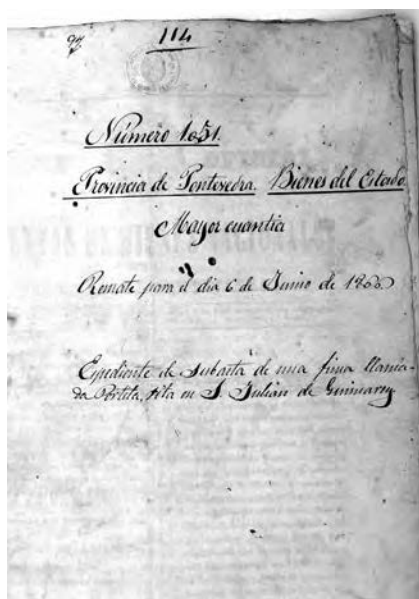 114
Número 1.051.
Provincia de Pontevedra. Bienes del Estado.
Mayor cuantia
Remate para el dia 6 de Junio de
Expediente de Subasta de una finca llama-
da Portela, sita en S. Julian de Guimarey